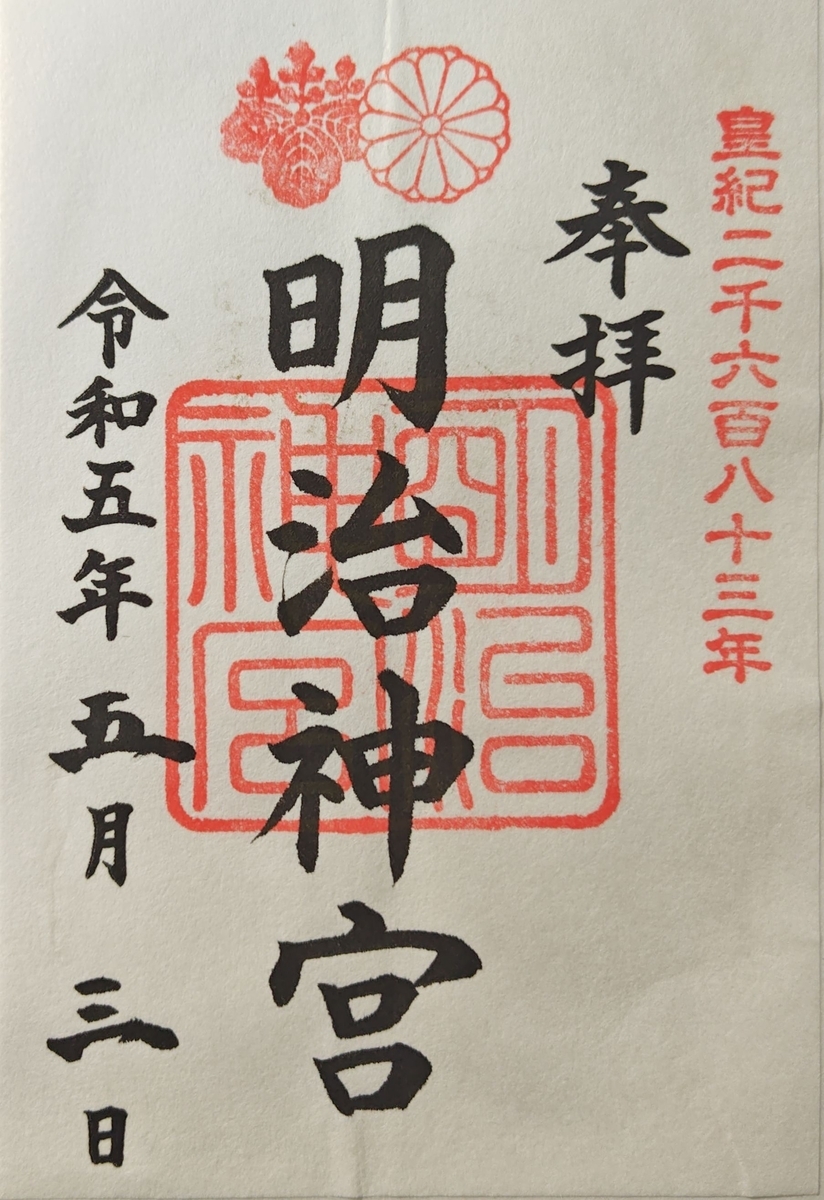 皇紀二千六百八十三年
奉拝
明治神宮
明治神宮
令和五年 五月 三日